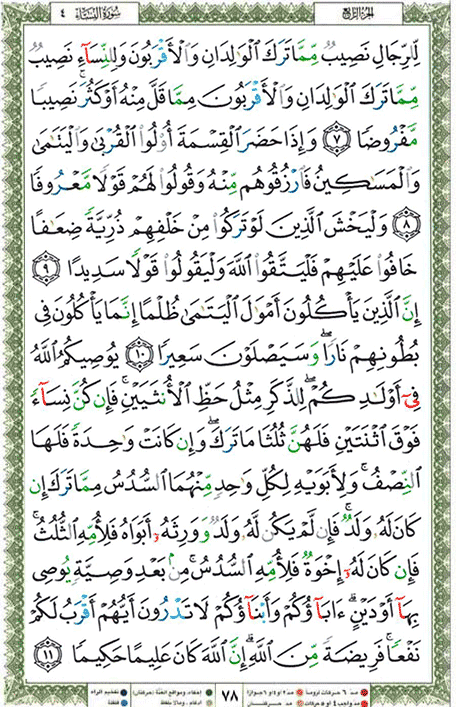 الجزء الرابع
سورة النساء ٤
لِّلرِّجَالِ نَصِيبٌ مِّمَّا تَرَكَ الْوَالِدَانِ وَالْأَقْرَبُونَ وَلِلنِّسَآءِ نَصِيبٌ
مِّمَّا تَرَكَ الْوَالِدَانِ وَالْأَقْرَبُونَ مِمَّا قَلَّ مِنْهُ أَوْ كَثُرَ ۚ نَصِيبًا
مَّفْرُوضًا ٧ وَإِذَا حَضَرَ الْقِسْمَةَ أُولُوا الْقُرْبَىٰ وَالْيَتَامَىٰ
وَالْمَسَاكِينُ فَارْزُقُوهُم مِّنْهُ وَقُولُوا لَهُمْ قَوْلًا مَّعْرُوفًا
٨ وَلْيَخْشَ الَّذِينَ لَوْ تَرَكُوا مِنْ خَلْفِهِمْ ذُرِّيَّةً ضِعَافًا
خَافُوا عَلَيْهِمْ فَلْيَتَّقُوا اللَّهَ وَلْيَقُولُوا قَوْلًا سَدِيدًا ٩
إِنَّ الَّذِينَ يَأْكُلُونَ أَمْوَالَ الْيَتَامَىٰ ظُلْمًا إِنَّمَا يَأْكُلُونَ فِي
بُطُونِهِمْ نَارًا ۖ وَسَيَصْلَوْنَ سَعِيرًا ١٠ يُوصِيكُمُ اللَّهُ
فِىٓ أَوْلَادِكُمْ ۖ لِلذَّكَرِ مِثْلُ حَظِّ الْأُنثَيَيْنِ ۚ فَإِن كُنَّ نِسَآءً
فَوْقَ اثْنَتَيْنِ فَلَهُنَّ ثُلُثَا مَا تَرَكَ ۖ وَإِن كَانَتْ وَاحِدَةً فَلَهَا
النِّصْفُ ۚ وَلِأَبَوَيْهِ لِكُلِّ وَاحِدٍ مِّنْهُمَا السُّدُسُ مِمَّا تَرَكَ إِن
كَانَ لَهُۥ وَلَدٌ ۚ فَإِن لَّمْ يَكُن لَّهُۥ وَلَدٌ وَوَرِثَهُۥٓ أَبَوَاهُ فَلِأُمِّهِ الثُّلُثُ ۚ
فَإِن كَانَ لَهُۥٓ إِخْوَةٌ فَلِأُمِّهِ السُّدُسُ ۚ مِنۢ بَعْدِ وَصِيَّةٍ يُوصِى
بِهَآ أَوْ دَيْنٍ ۗ ءَابَآؤُكُمْ وَأَبْنَآؤُكُمْ لَا تَدْرُونَ أَيُّهُمْ أَقْرَبُ لَكُمْ
نَفْعًا ۚ فَرِيضَةً مِّنَ اللَّهِ ۗ إِنَّ اللَّهَ كَانَ عَلِيمًا حَكِيمًا ١١
٧٨